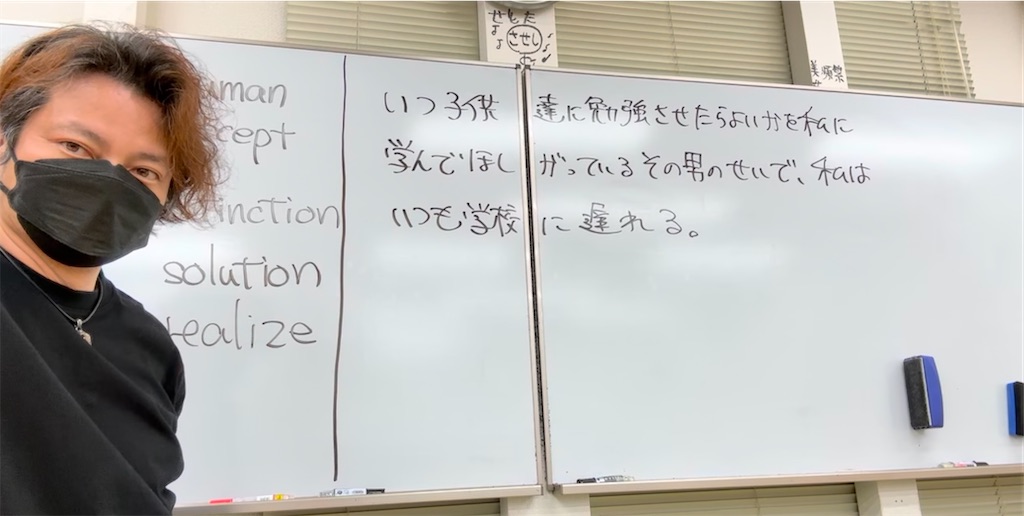 solution
realize
いつ子供達に勉強させたらよいかを私に
学んでほしがっているその男のせいで、私は
いつも学校に遅れる。
させし